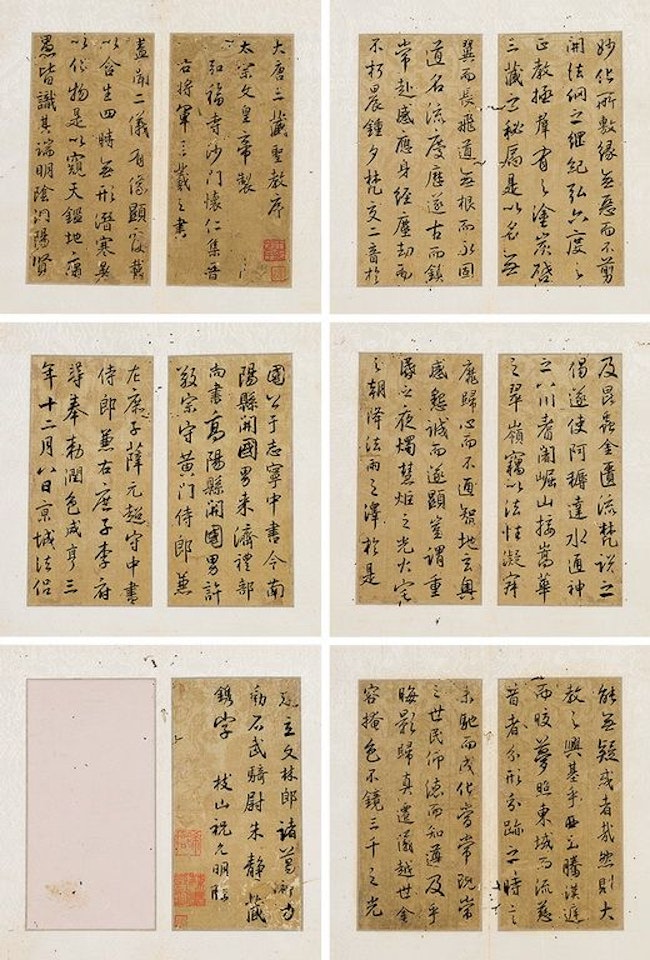 大唐三藏聖教序
太宗文皇帝製
弘福寺沙門懷仁集晉
右將軍王羲之書
蓋聞二儀有像顯覆載
以含生四時無形潛寒暑
以化物是以窺天鑑地庸
愚皆識其端明陰洞陽賢
妙化所敷緣無惡而不剪
開法網之綱紀弘六度之
正教拯群有之塗炭啓
三藏之秘扃是以名無
翼而長飛道無根而永固
道名流慶歷遂古而鎮
常赴感應身經塵劫而
不朽晨鍾夕梵交二音於
國公于志寧中書令南
陽縣開國男來濟禮部
尚書高陽縣開國男許
敬宗守黃門侍郎兼
左庶子薛元超守中書
侍郎兼右庶子李府
等奉勅潤色咸亨三
年十二月八日京城法侶
及昆蟲金匱流梵說之
偈遂使阿耨達水通神
之八川耆闍崛山接嵩華
之翠嶺竊以法性凝寂
靡歸心而不通智地玄奧
感懇誠而遂顯豈謂重
昏之夜燭慧炬之光火宅
之朝降法雨之澤於是
建立文林郎諸葛神力
勒石武騎尉朱靜藏
鐫字 枝山祝允明臨
能無疑或者哉然則大
教之興基乎西土騰漢庭
而皎夢照東域而流慈
昔者分形分跡之時言
未馳而成化當常現常
之世民仰德而知遵及乎
晦影歸真遷儀越世金
容掩色不鏡三千之光